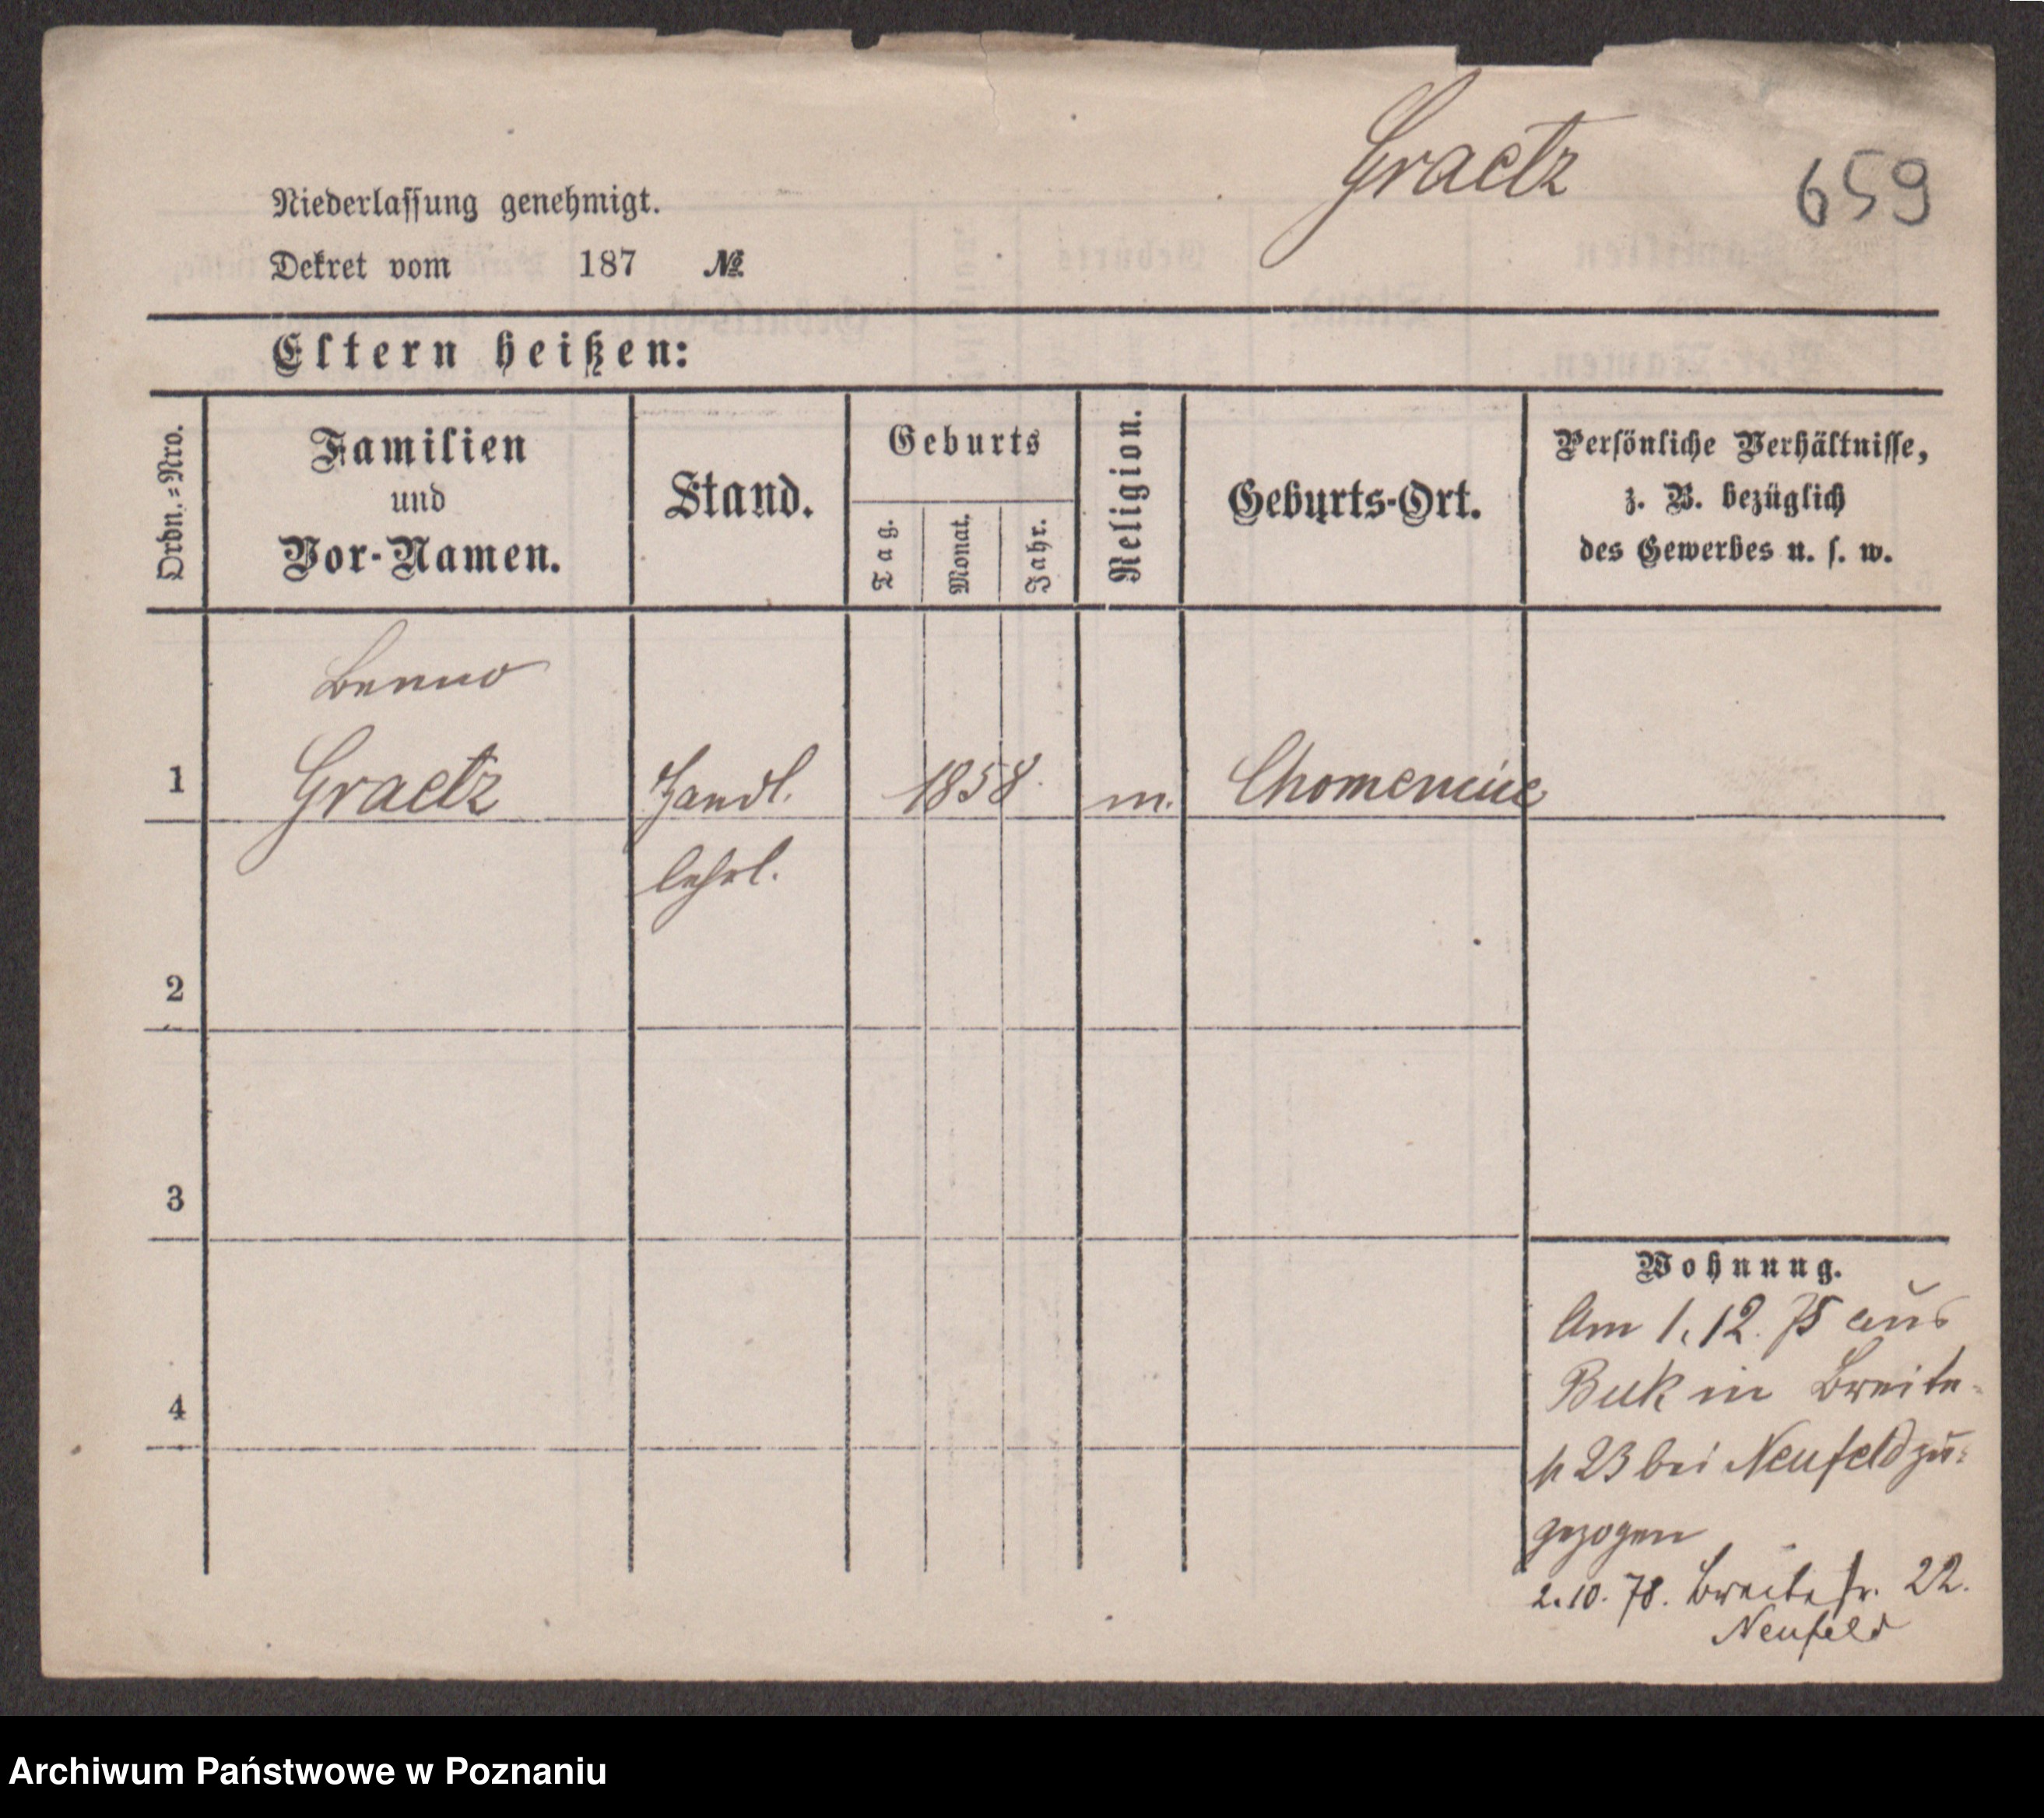 Graetz
659
Niederlassung genehmigt.
Dekret vom 187 №
Eltern heißen:
Ordn.=Nro.
Familien
und
Vor-Namen.
Stand.
Geburts
Tag.
Monat.
Jahr.
Religion.
Geburts-Ort.
Persönliche Verhältnisse,
z. B. bezüglich
des Gewerbes u. s. w.
Benno
1 Graetz Handl. 1858. m.
lehrl.
2
3
4
Wohnung.
Am 1. 12. 75 aus
Buk in Breite-
23 bei Neufeld zu-
gezogen
2. 10. 78. Breitestr. 22.
Neufeld
Archiwum Państwowe w Poznaniu